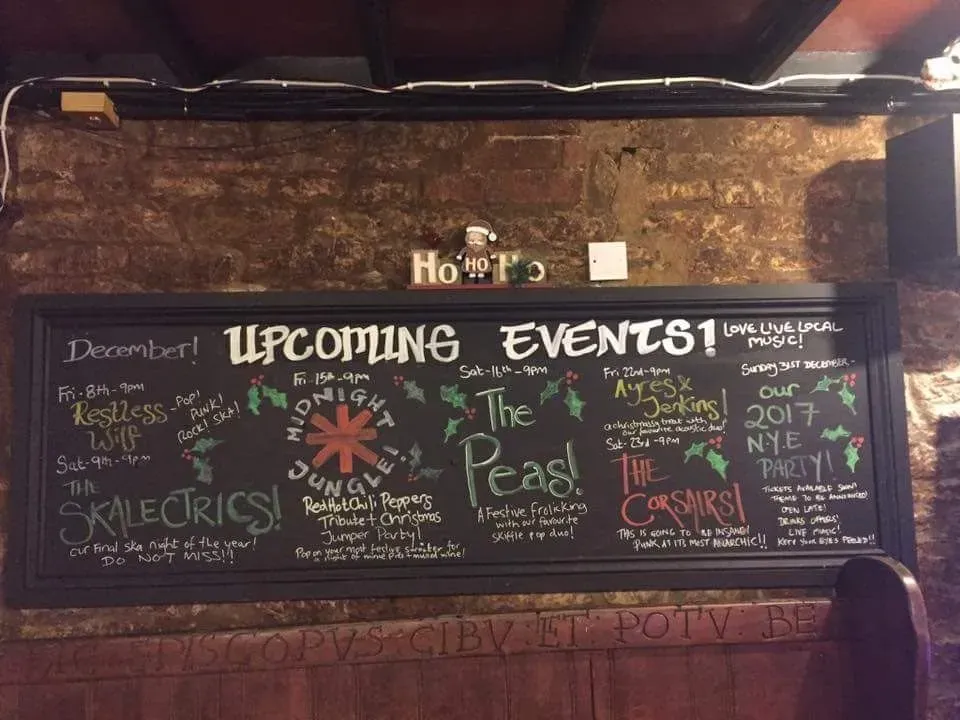 Ho HO Ho
UPCOMING EVENTS!
LOVE LIVE LOCAL
MUSIC!
December!
Fri-8th-9pm
Restless
Wilf
- Pop!
PUNK!
ROCK! SKA!
Sat-9th-9pm
THE
SKALECTRICS!
our final ska night of the year!
DO NOT MISS!!!
Fri-15th-9pm
MIDNIGHT
JUNGLE!
Red Hot Chili Peppers
Tribute + Christmas
Jumper Party!
Pop on your most festive sweater for
a night of mince pies + mulled wine!
Sat-16th-9pm
The
Peas!
A Festive Frolicking
with our favourite
skiffle pop duo!
Fri 22nd-9pm
Ayres &
Jenkins!
a christmassy treat with
our favourite acoustic duo!
Sat-23rd-9pm
THE
CORSAIRS!
THIS IS GOING TO BE INSANE!
PUNK AT ITS MOST ANARCHIC!!
SUNDAY 31ST DECEMBER-
our
2017
N.Y.E
PARTY!
TICKETS AVAILABLE SOON!
THEME TO BE ANNOUNCED!
OPEN LATE!
DRINKS OFFERS!
LIVE MUSIC!
KEEP YOUR EYES PEELED!!
EPISCOPVS: CIBV: ET: POTV: BE